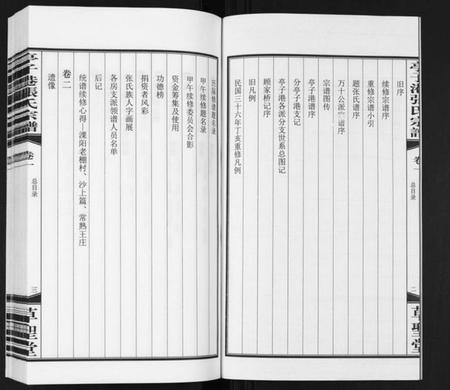 亭子港張氏宗譜
卷一
总目录
二
草聖堂
旧序
续修宗谱序
重修宗谱小引
题张氏谱序
万十公派谱序
宗谱图传
亭子港谱序
分亭子港支记
亭子港各派分支世系总图记
顾家桥记
旧凡例
民国三十六年丁亥重修凡例
甲午续修题名录
甲午续修委员会合影
资金筹集及使用
功德榜
捐资者风彩
张氏族人字画展
各房支派领谱人员名单
后记
统谱续修心得—溧阳老棚村、沙上篇、常熟王庄
卷二
遗像
亭子港張氏宗譜
卷一
总目录
三
草聖堂